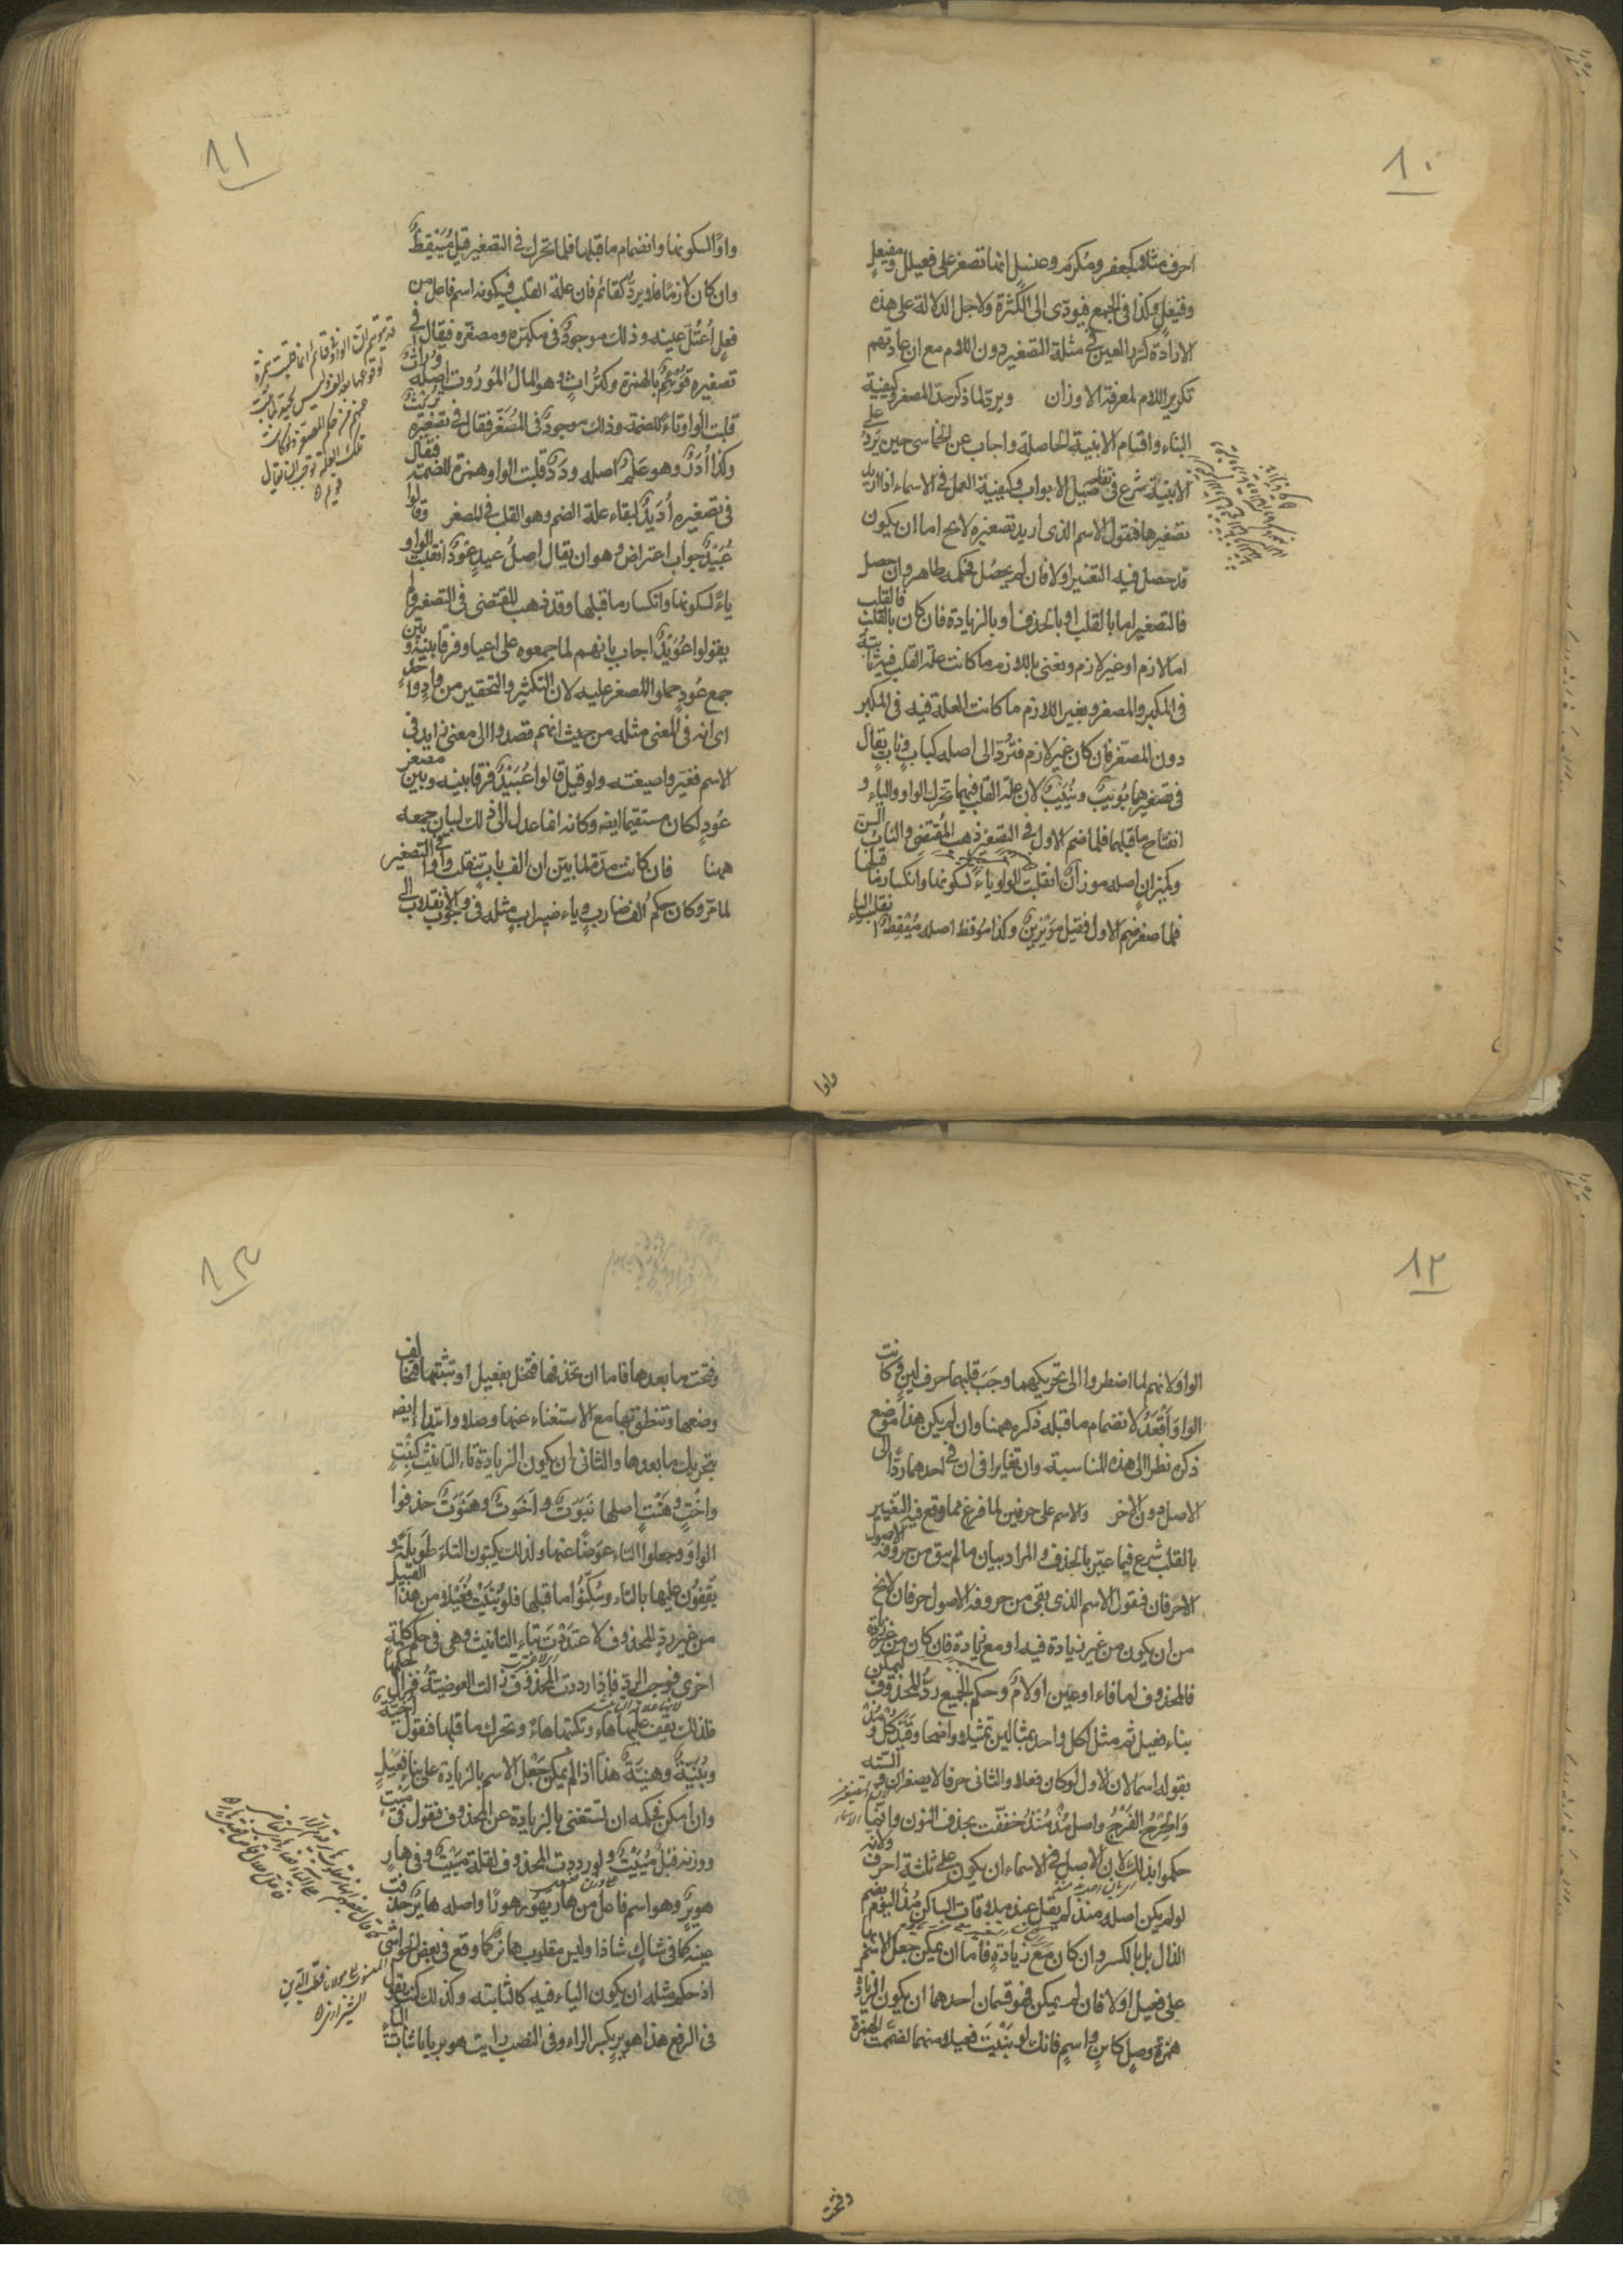 ٨٠
احرف مثلا كجعفر ومكرم وعنسل انما تصغر على فعيلل ومفيعل
وفنيعل وكذا فى الجمع فيودّى الى الكثرة ولاجل الدلالة على هذه
الارادة كرر العين فى مثلة التصغير دون اللام مع ان عادتهم
تكرير اللام لمعرفة الاوزان ويردّ لما ذكر حدّ المصغر وكيفية
البناء واقسام الابنية الحاصلة واجاب عن الخماسى حين يرد على
الابنية شرع فى تفصيل الابواب وكيفية العمل فى الاسماء اذا اريد
تصغيرها فنقول الاسم الذى اريد تصغيره لايخ اما ان يكون
قد حصل فيه التغيير اولا فان لم يحصل فحكمه ظاهر وان حصل
فالتصغير اما بالقلب او بالحذف او بالزيادة فان كان بالقلب فالقلب
اما لازم او غير لازم ونعنى باللازم ما كانت علة القلب فيه ثابتة
فى المكبر والمصغر وبغير اللازم ما كانت العلة فيه فى المكبر
دون المصغر فان كان غير لازم فتردّ الى اصله كباب وناب يقال
فى تصغيرهما بويب ونييب لان علة القلب فيهما تحرك الواو والياء و
انفتاح ما قبلهما فلما ضم الاول فى التصغير ذهب المقتضى والناب السن
وكميزان اصله موزان انقلبت الواو ياء لسكونها وانكسار ما قبلها
فلما صغر ضم الاول فقيل مويزين وكذا موقظ اصله ميقظ نقلب الياء
واوا
٨١
واوا لسكونها وانضمام ما قبلها فلما تحرك فى التصغير قيل مييقظ
وان كان لازما فلا يردّ كقائم فان علة القلب فيه كونه اسم فاعل من
فعل اعتلّ عينه وذلك موجود فى مكبره ومصغره فيقال فى
تصغيره قويئم بالهمزة وكتراث وهو المال الموروث اصله وراث
قلبت الواو تاء للضمة وذلك موجود فى المصغر فقال فى تصغيره تريث
وكذا أدد وهو علم اصله ودد قلبت الواو همزة للضمة فقال
فى تصغيره أديد لبقاء علة الضم وهو القلب فى المصغر وقالوا
عييد جواب اعتراض وهو ان يقال اصل عيد عود انقلبت الواو
ياء لسكونها وانكسار ما قبلها وقد ذهب المقتضى فى التصغير ولم
يقولوا عويد اجاب بانهم لما جمعوه على اعياد فرقا بينه وبين
جمع عود حملوا المصغر عليه لان التكثير والتحقير من واد واحد
اى انه فى المعنى مثله من حيث انهم قصدوا الى معنى زايد فى
الاسم فغيروا صيغته ولو قيل قالوا عييد فرقا بينه وبين مصغر
عود لكان مستقيما ايضه وكانه انما عدل الى ذلك لبيان جمعه
ههنا فان كانت مدة لما بيّن ان الف باب تنقلب واوا فى التصغير
لما مرّ وكان حكم الف ضارب وياء ضيراب مثله فى وجوب الانقلاب الى
٨٢
الواو لانهم لما اضطروا الى تحريكهما وجب قلبهما حرف لين وكانت
الواو أقعد لانضمام ما قبله ذكره ههنا وان لم يكن هذا موضع
ذكره نظرا الى هذه المناسبة وان تغايرا فى ان فى احدهما ردّا الى
الاصل دون الاخر والاسم على حرفين لما فرغ مما وقع فيه التغيير
بالقلب شرع فيما غير بالحذف والمراد بيان ما لم يبق من حروفه الاصول
الا حرفان فنقول الاسم الذى بقى من حروفه الاصول حرفان لايخ
من ان يكون من غير زيادة فيه او مع زيادة فان كان من غير زيادة
فالمحذوف اما فاء او عين او لام وحكم الجميع ردّ المحذوف ليمكن
بناء فعيل ثم مثل لكل واحد بمثالين تمثيلا واضحا وقيّد كل ومذ
بقوله اسما لان الاول لو كان فعلا والثانى حرفا لا يصغران والسته
والحرح الفرج واصل مذ منذ خففت بحذف النون وانما
حكموا بذلك لان الاصل فى الاسماء ان يكون على ثلثة احرف ولانه
لو لم يكن اصله منذ لم يقل عند ملاقات الساكن مذ اليوم بضم
الذال بل بالكسر وان كان مع زيادة فاما ان يمكن جعل الاسم بها
على فعيل اولا فان لم يمكن فهو قسمان احدهما ان يكون الزيادة
همزة وصل كابن واسم فانك لو بنيت فعيلا منهما لضمت الهمزة
وفتحت
٨٣
وفتحت ما بعدها فاما ان تحذفها فتخل بفعيل او تثبتها فتخالف
وضعها وتنطق بها مع الاستغناء عنها وصلا وابتداء ايضه
بتحريك ما بعدها والثانى ان يكون الزيادة تاء التانيث كبنت
واخت وهنت اصلها بنوت واخوت وهنوت حذفوا
الواو وجعلوا التاء عوضا عنها ولذلك يكتبون التاء طويلة و
يقفون عليها بالتاء وسكّنوا ما قبلها فلو بنيت فعيلا من هذا القبيل
من غير ردّ المحذوف لاعتددت بتاء التانيث وهى فى حكم كلمة
اخرى فوجب الردّ فاذا رددت المحذوف زالت العوضية فزال حكمها
فلذلك يقف عليها هاء وتكتبها هاء وتحرك ما قبلها فتقول اخيّة
وبنيّة وهنيّة هذا اذا لم يمكن جعل الاسم بالزيادة على بناء فعيل
وان امكن فحكمه ان تستغنى بالزيادة عن المحذوف فنقول فى ميت
ووزنه فيل مييت ولو رددت المحذوف لقلت مييّت وفى هار
هوير وهو اسم فاعل من هار يهور هورا واصله هاير حذفت
عينه كما فى شاك شاذا وليس مقلوب هار كما وقع فى بعض الحواشى
اذ حكم مثله ان يكون الياء فيه كالثابتة وكذلك كنت تقول
فى الرفع هذا هوير بكسر الراء وفى النصب رايت هويريا باثبات الياء